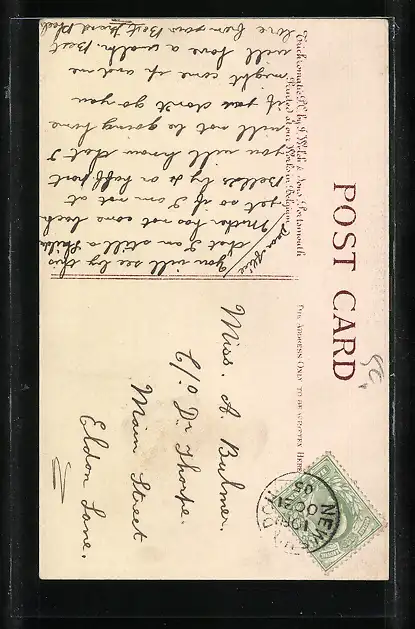 POST CARD
THE ADDRESS ONLY TO BE WRITTEN HERE
Trichromatic P.C. by J. Welch & Sons, Portsmouth
Printed at our Works in Belgium
Dear Aline
you will see by this
that I am still a
Mother has not come back
yet so if I am not at
Belle's by ½ or half past
you will know that I
will not be going home
if you don't go you
might come up and me
will have a walk. Best
love from your Best
Miss. A. Bulmer.
C/o Dr Thorpe.
Main Street
Eldon Lane.
OC 21
05